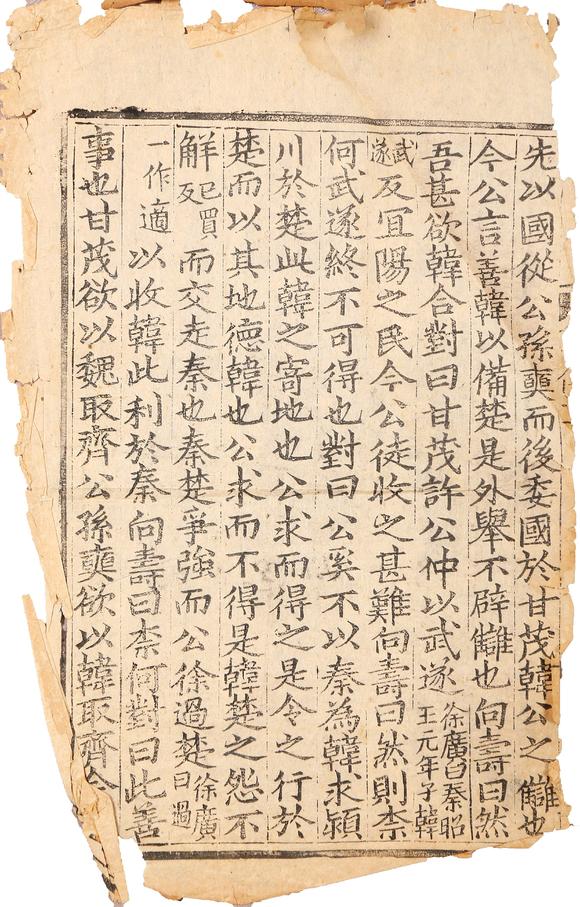 先以國從公孫奭而後委國於甘茂韓公之讎也
今公言善韓以備楚是外舉不辟讎也向壽曰然
吾甚欲韓合對曰甘茂許公仲以武遂徐廣曰秦昭王元年予韓
武遂反宜陽之民今公徒收之甚難向壽曰然則柰
何武遂終不可得也對曰公奚不以秦為韓求潁
川於楚此韓之寄地也公求而得之是令之行於
楚而以其地德韓也公求而不得是韓楚之怨不
解已買反而交走秦也秦楚爭強而公徐過楚徐廣曰過
一作適以收韓此利於秦向壽曰柰何對曰此善
事也甘茂欲以魏取齊公孫奭欲以韓取齊今